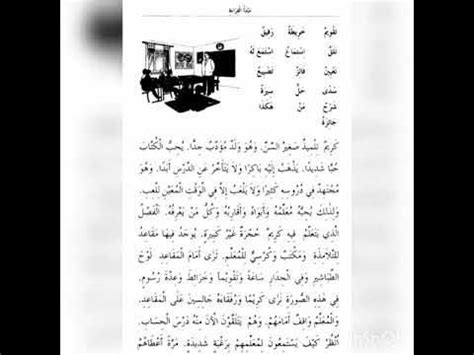 مَبْدَأُ الْقِرَاءَةِ
تَقْوِيمٌ خَرِيطَةٌ رَفِيقٌ
تَلَقَّ اسْتِمَاعٌ اسْتَمَعَ لَهُ
تَعْيِينٌ فَائِزٌ تَضْيِيعٌ
سُدًى حَلَّ سِيرَةٌ
شَرْحٌ مَنْ هٰكَذَا
جَائِزَةٌ
كَرِيمٌ تِلْمِيذٌ صَغِيرُ السِّنِّ. وَهُوَ وَلَدٌ مُؤَدَّبٌ جِدًّا. يُحِبُّ الْكُتَّابَ
حُبًّا شَدِيدًا. يَذْهَبُ إِلَيْهِ بَاكِرًا وَلَا يَتَأَخَّرُ عَنِ الدَّرْسِ أَبَدًا. وَهُوَ
مُجْتَهِدٌ فِي دُرُوسِهِ كَثِيرًا وَلَا يَلْعَبُ إِلَّا فِي الْوَقْتِ الْمُعَيَّنِ لِلَّعِبِ.
وَلِذٰلِكَ يُحِبُّهُ مُعَلِّمُهُ وَأَبَوَاهُ وَأَقَارِبُهُ وَكُلُّ مَنْ يَعْرِفُهُ. اَلْفَصْلُ
الَّذِي يَتَعَلَّمُ فِيهِ كَرِيمٌ حُجْرَةٌ غَيْرُ كَبِيرَةٍ. يُوجَدُ فِيهَا مَقَاعِدُ
لِلتَّلَامِذَةِ وَمَكْتَبٌ وَكُرْسِيٌّ لِلْمُعَلِّمِ. تَرَى أَمَامَ الْمَقَاعِدِ لَوْحَ
الطَّبَاشِيرِ وَفِي الْجِدَارِ سَاعَةً وَتَقْوِيمًا وَخَرَائِطَ وَعِدَّةَ رُسُومٍ.
فِي هٰذِهِ الصُّورَةِ تَرَى كَرِيمًا وَرُفَقَاءَهُ جَالِسِينَ عَلَى الْمَقَاعِدِ.
وَالْمُعَلِّمُ وَاقِفٌ أَمَامَهُمْ. وَهُمْ يَتَلَقَّوْنَ الْآنَ مِنْهُ دَرْسَ الْحِسَابِ.
اُنْظُرْ كَيْفَ يَسْتَمِعُونَ لِمُعَلِّمِهِمْ بِرَغْبَةٍ شَدِيدَةٍ. مَرَّةً أَعْطَاهُمْ